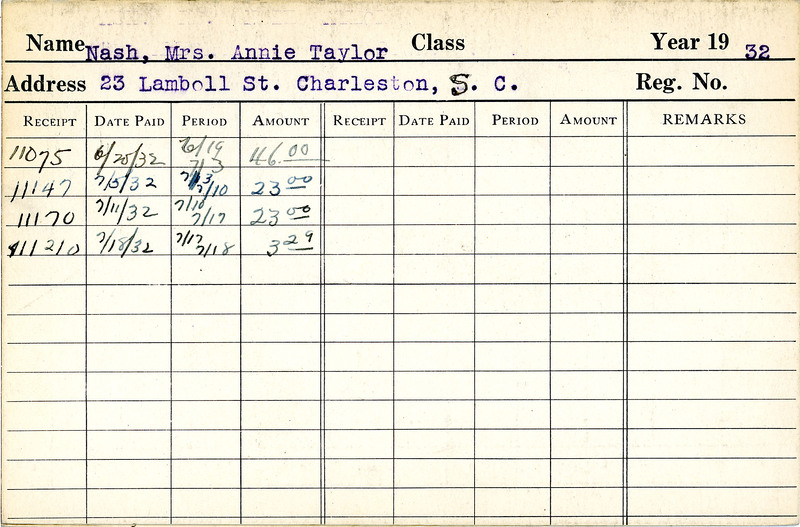 Name Nash, Mrs. Annie Taylor Class Year 19 32
Address 23 Lamboll St. Charleston, S. C. Reg. No.
RECEIPT DATE PAID PERIOD AMOUNT RECEIPT DATE PAID PERIOD AMOUNT REMARKS
11075 6/20/32 6/19 7/3 46.00
11147 7/5/32 7/3 7/10 23 00
11170 7/11/32 7/10 7/17 23 00
11210 7/18/32 7/17 7/18 3 29